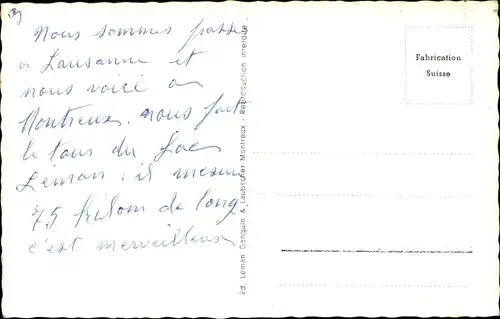 Nous sommes passé
a Lausanne et
nous voici a
Montreux. nous font
le tour du Lac
Léman, il mesure
75 kilom de long
c'est merveilleux
Ed. Léman Ganguin & Laubscher Montreux - Reproduction interdite
Fabrication
Suisse